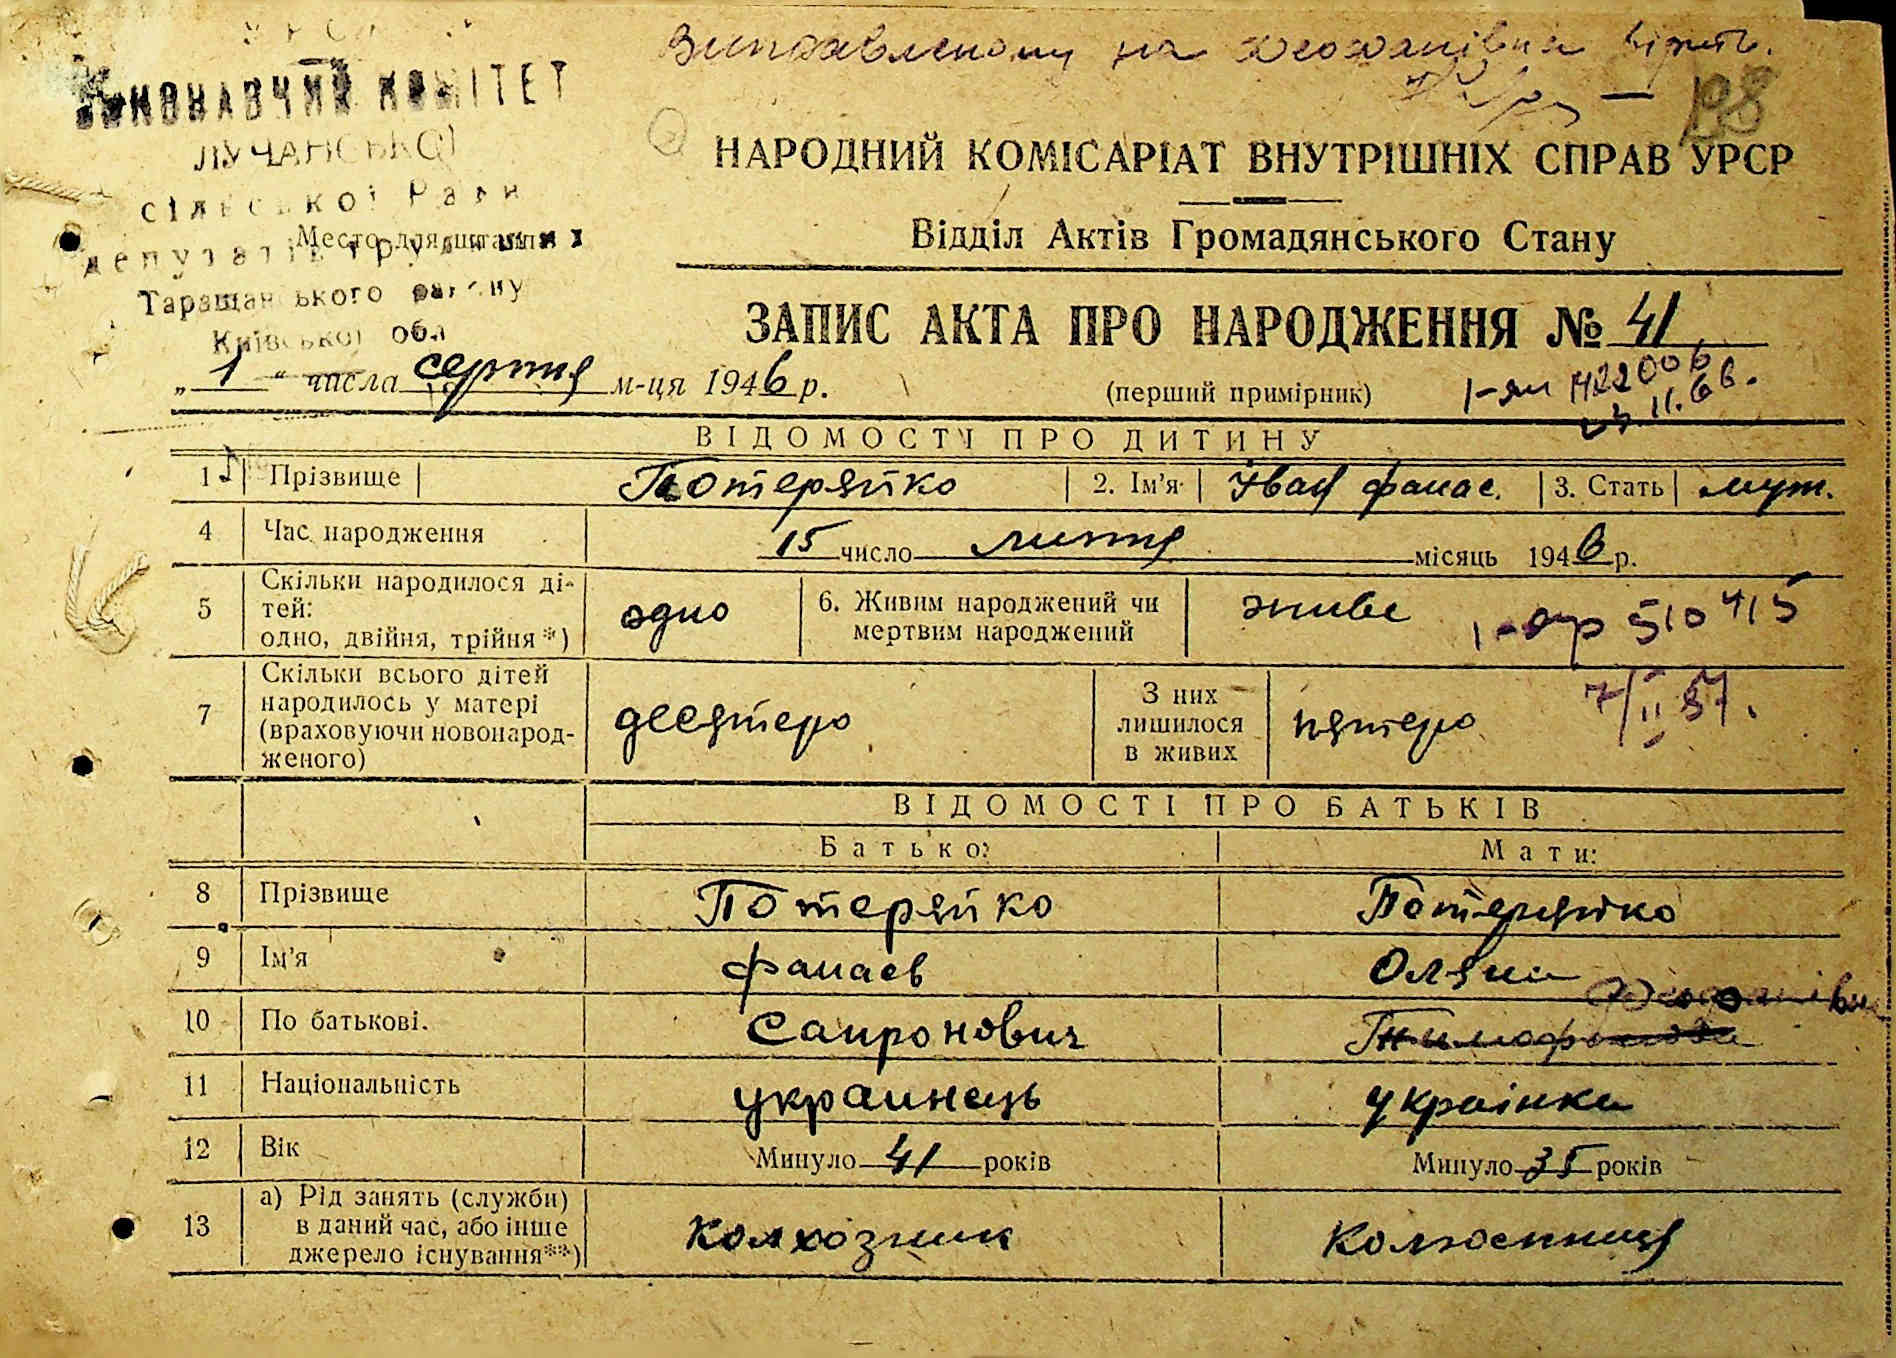 Виправленому на Феофанівна вірить.
198
УРСР
ВИКОНАВЧИЙ КОМІТЕТ
ЛУЧАНСЬКОЇ
сільської Ради
депутатів трудящих
Место для штампа
Таращанського району
Київської обл
НАРОДНИЙ КОМІСАРІАТ ВНУТРІШНІХ СПРАВ УРСР
Відділ Актів Громадянського Стану
ЗАПИС АКТА ПРО НАРОДЖЕННЯ № 41
„ 1 “ числа серпня м-ця 1946 р.
(перший примірник)
І-ЯИ 422006
11.66.
ВІДОМОСТІ ПРО ДИТИНУ
1 Прізвище Потеряйко 2. Ім'я Іван фанас. 3. Стать муж.
4 Час народження 15 число липня місяць 1946 р.
5 Скільки народилося ді-
тей:
одно, двійня, трійня*) одно 6. Живим народжений чи
мертвим народжений живе
510415
7/II 57.
7 Скільки всього дітей
народилось у матері
(враховуючи новонарод-
женого) десятеро З них
лишилося
в живих пятеро
ВІДОМОСТІ ПРО БАТЬКІВ
Батько: Мати:
8 Прізвище Потеряйко Потеряйко
9 Ім'я фанаев Оляна
Феофанівна
10 По батькові. Сапронович Тимофіївна
11 Національність украинець українка
12 Вік Минуло 41 років Минуло 35 років
13 а) Рід занять (служби)
в даний час, або інше
джерело існування**) колхозник колхозниця